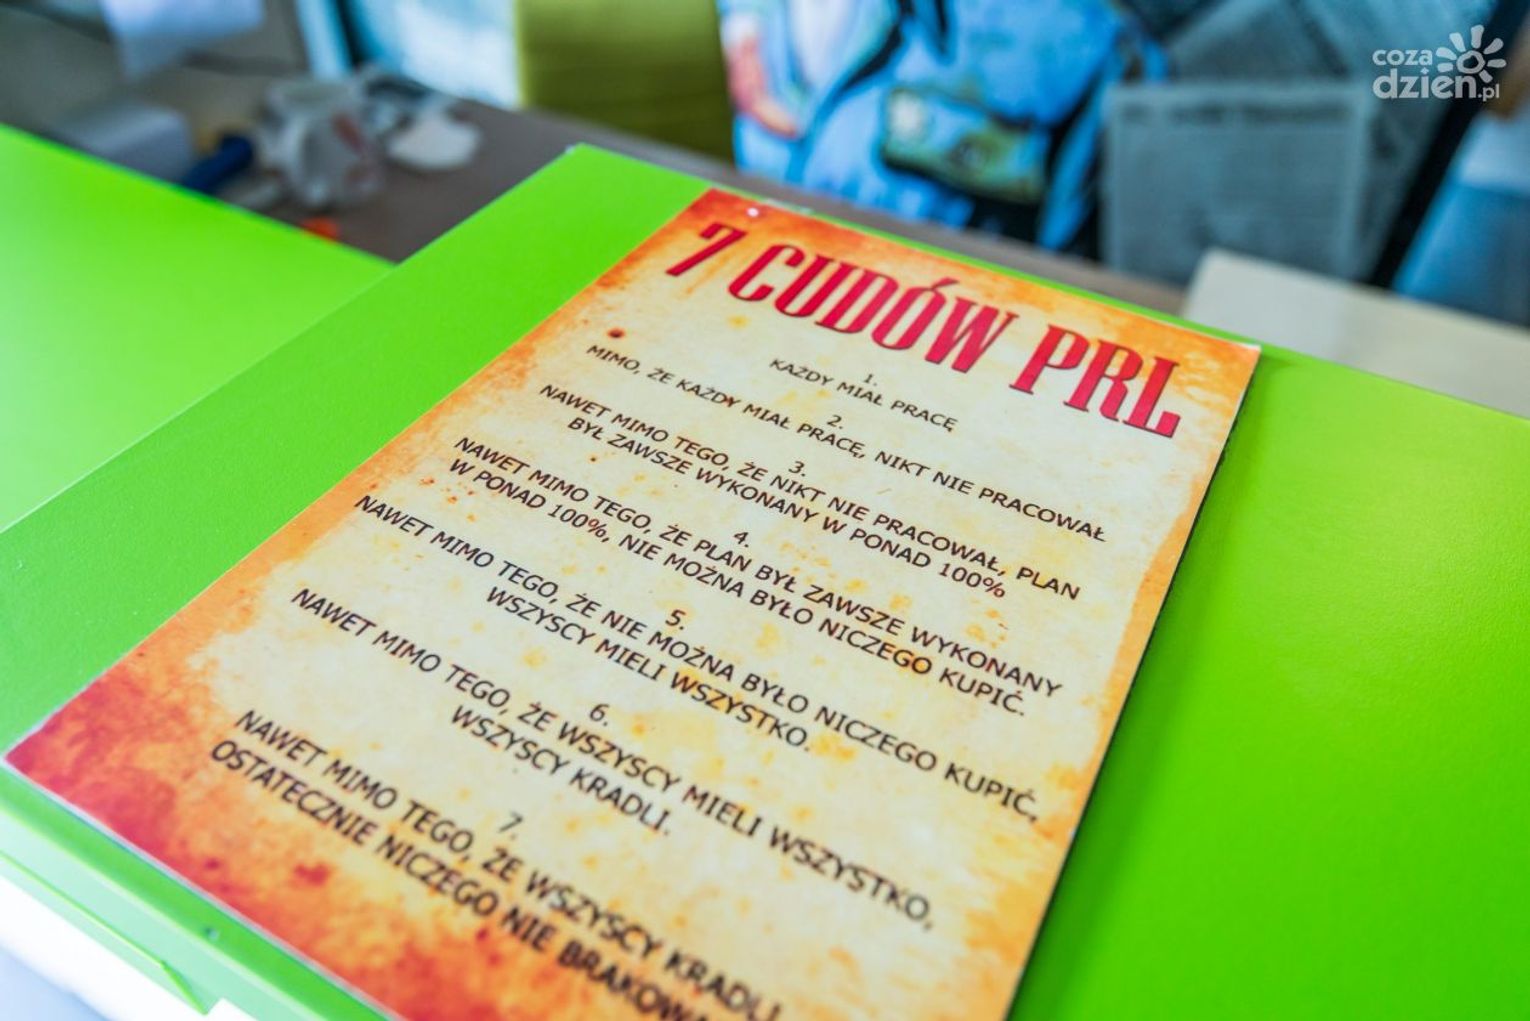 coza
dzien.pl
7 CUDÓW PRL
1.
KAŻDY MIAŁ PRACĘ
2.
MIMO, ŻE KAŻDY MIAŁ PRACĘ, NIKT NIE PRACOWAŁ
3.
NAWET MIMO TEGO, ŻE NIKT NIE PRACOWAŁ, PLAN
BYŁ ZAWSZE WYKONANY W PONAD 100%
4.
NAWET MIMO TEGO, ŻE PLAN BYŁ ZAWSZE WYKONANY
W PONAD 100%, NIE MOŻNA BYŁO NICZEGO KUPIĆ.
5.
NAWET MIMO TEGO, ŻE NIE MOŻNA BYŁO NICZEGO KUPIĆ,
WSZYSCY MIELI WSZYSTKO.
6.
NAWET MIMO TEGO, ŻE WSZYSCY MIELI WSZYSTKO,
WSZYSCY KRADLI.
7.
NAWET MIMO TEGO, ŻE WSZYSCY KRADLI
OSTATECZNIE NICZEGO NIE